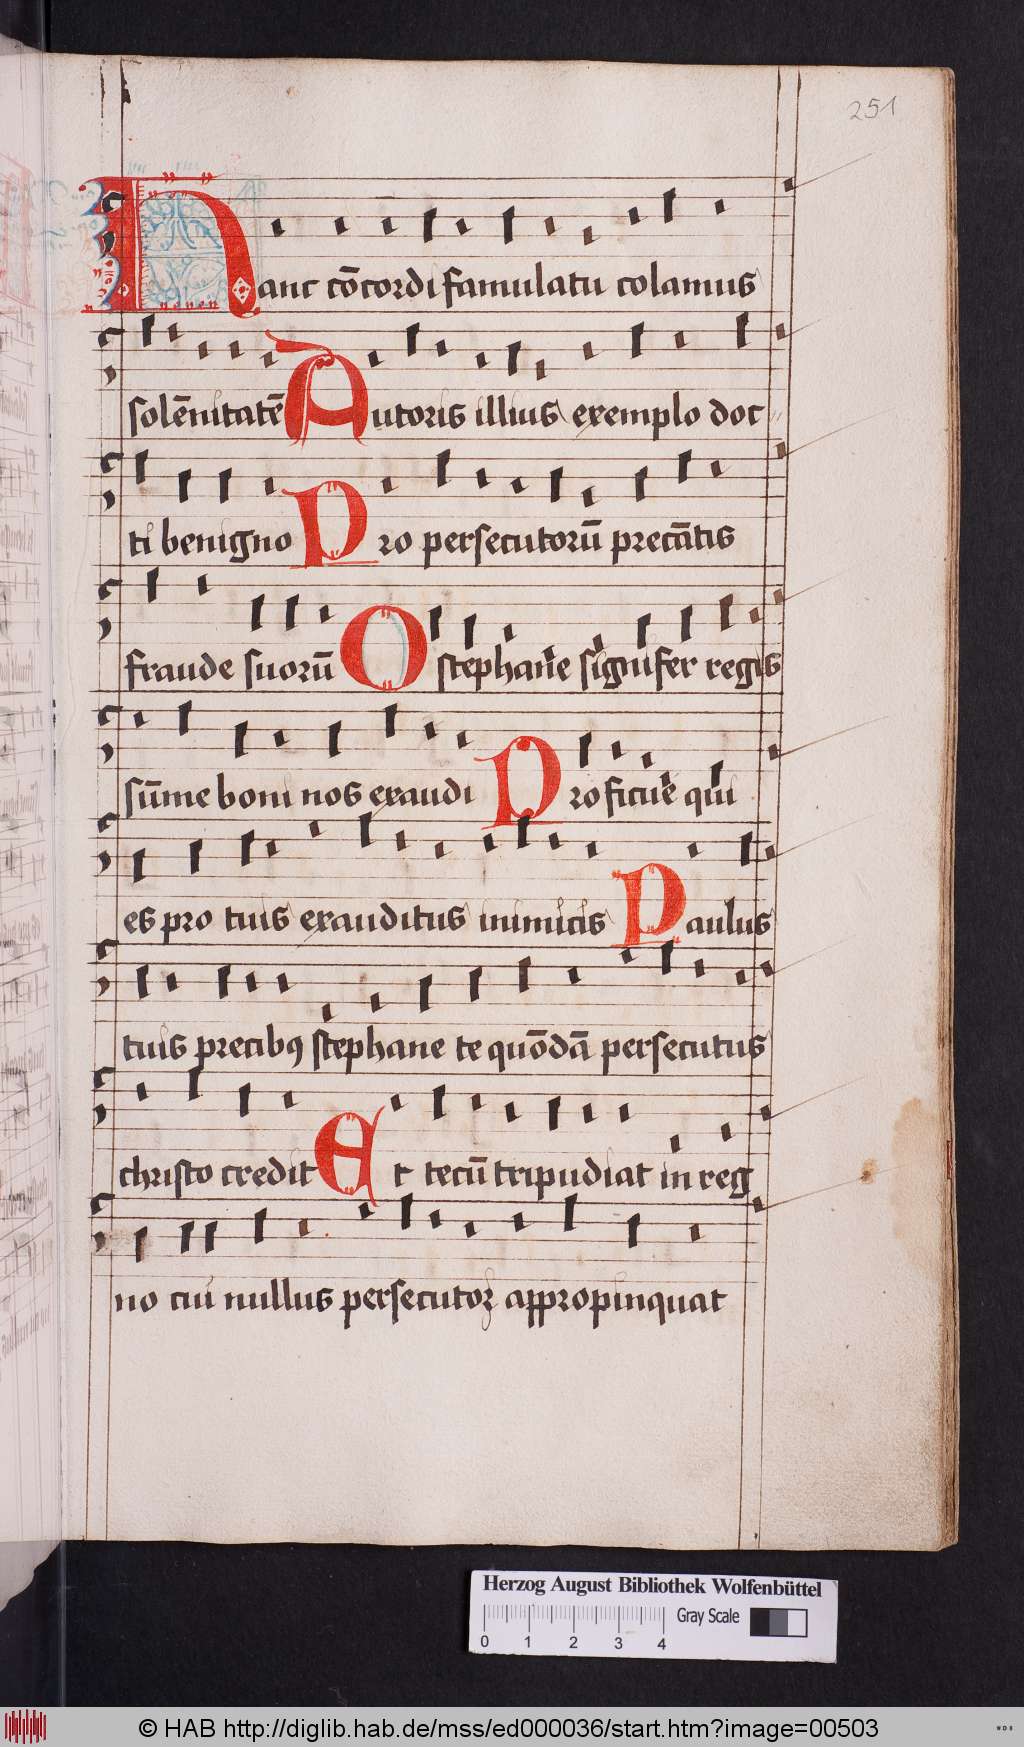 251
Hanc cōcordi famulatu colamus
solēnitatē Autoris illius exemplo doc
ti benigno Pro persecutorū precātis
fraude suorū O stephane signifer regis
sūme boni nos exaudi Proficue qui
es pro tuis exauditus inimicis Paulus
tuis precibꝯ stephane te quōdā persecutus
christo credit Et tecū tripudiat in reg
no cui nullus persecutoꝝ appropinquat
Herzog August Bibliothek Wolfenbüttel
Gray Scale
0 1 2 3 4
© HAB http://diglib.hab.de/mss/ed000036/start.htm?image=00503